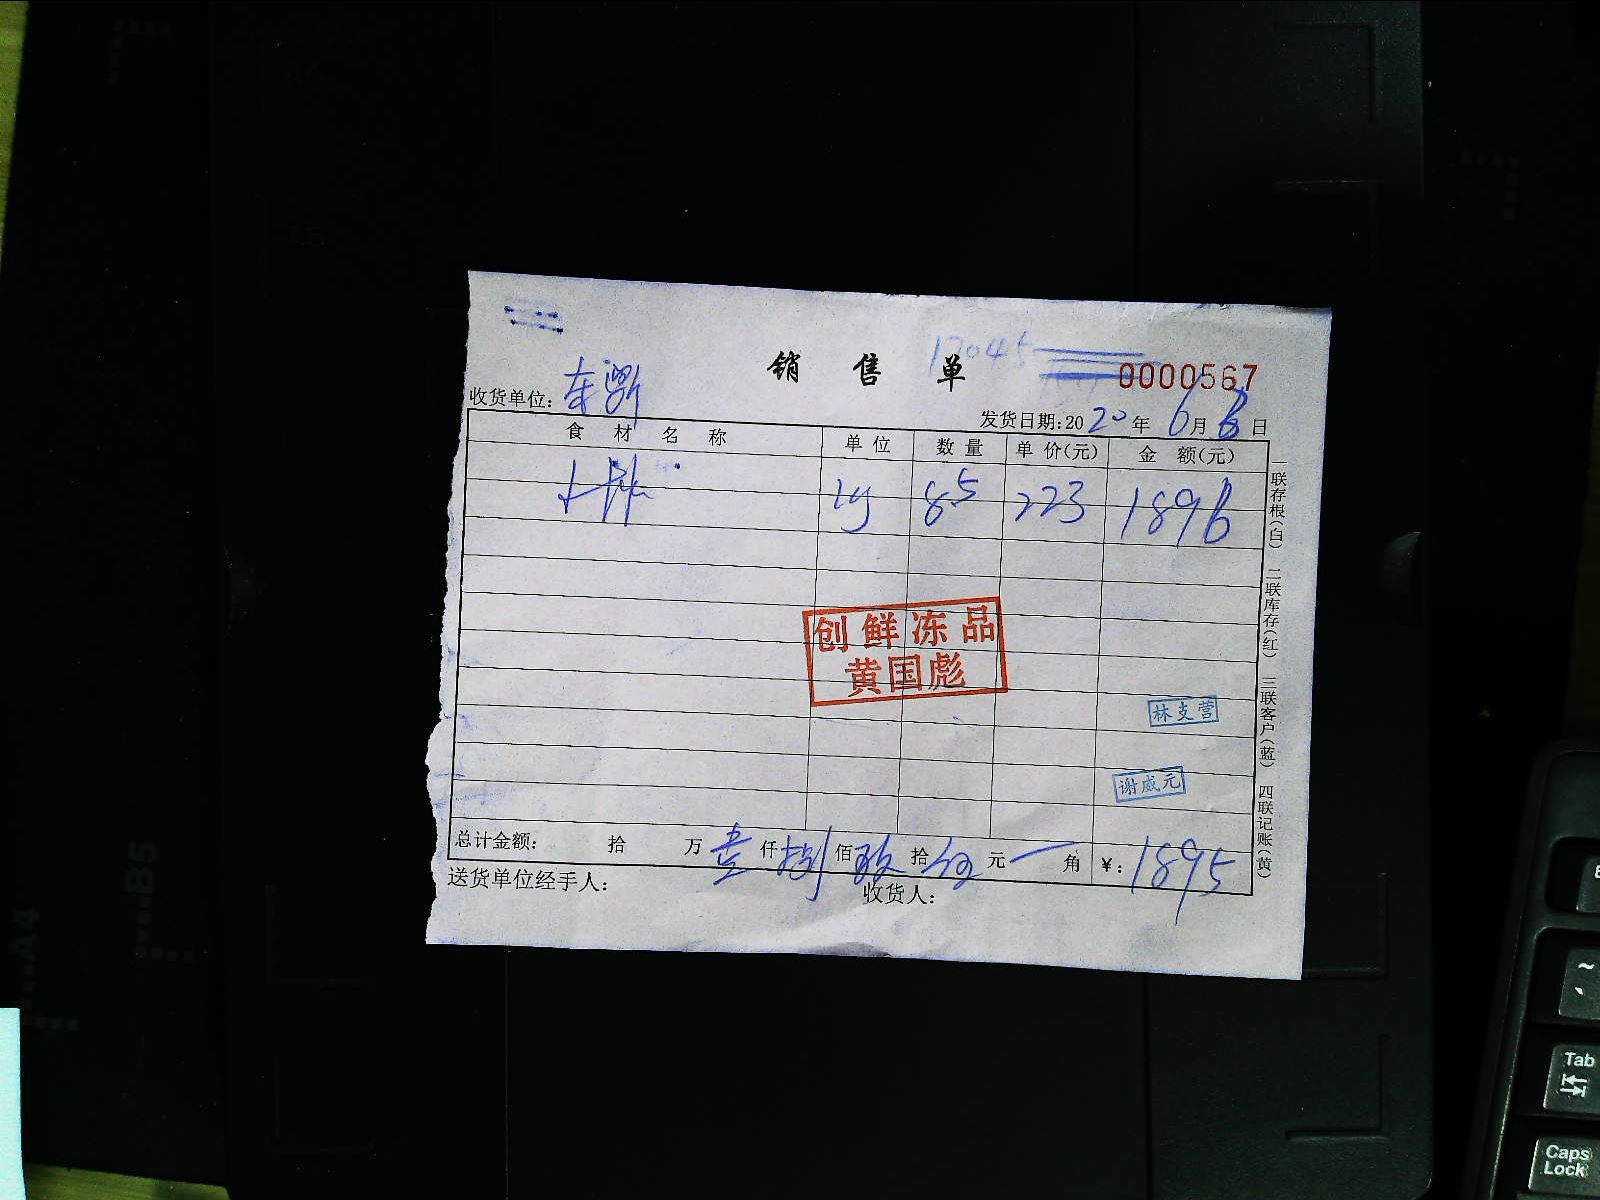 销售单
0000567
收货单位：
发货日期：2020年6月8日
食材名称 单位 数量 单价(元) 金额(元)
85 223 1896
创鲜冻品
黄国彪
林支营
谢威元
总计金额： 拾 万 壹 仟 捌 佰 玖 拾 伍 元 一 角 ¥：1895
送货单位经手人： 收货人：
一联存根(白) 二联库存(红) 三联客户(蓝) 四联记账(黄)
B5
A4
Tab
Caps Lock